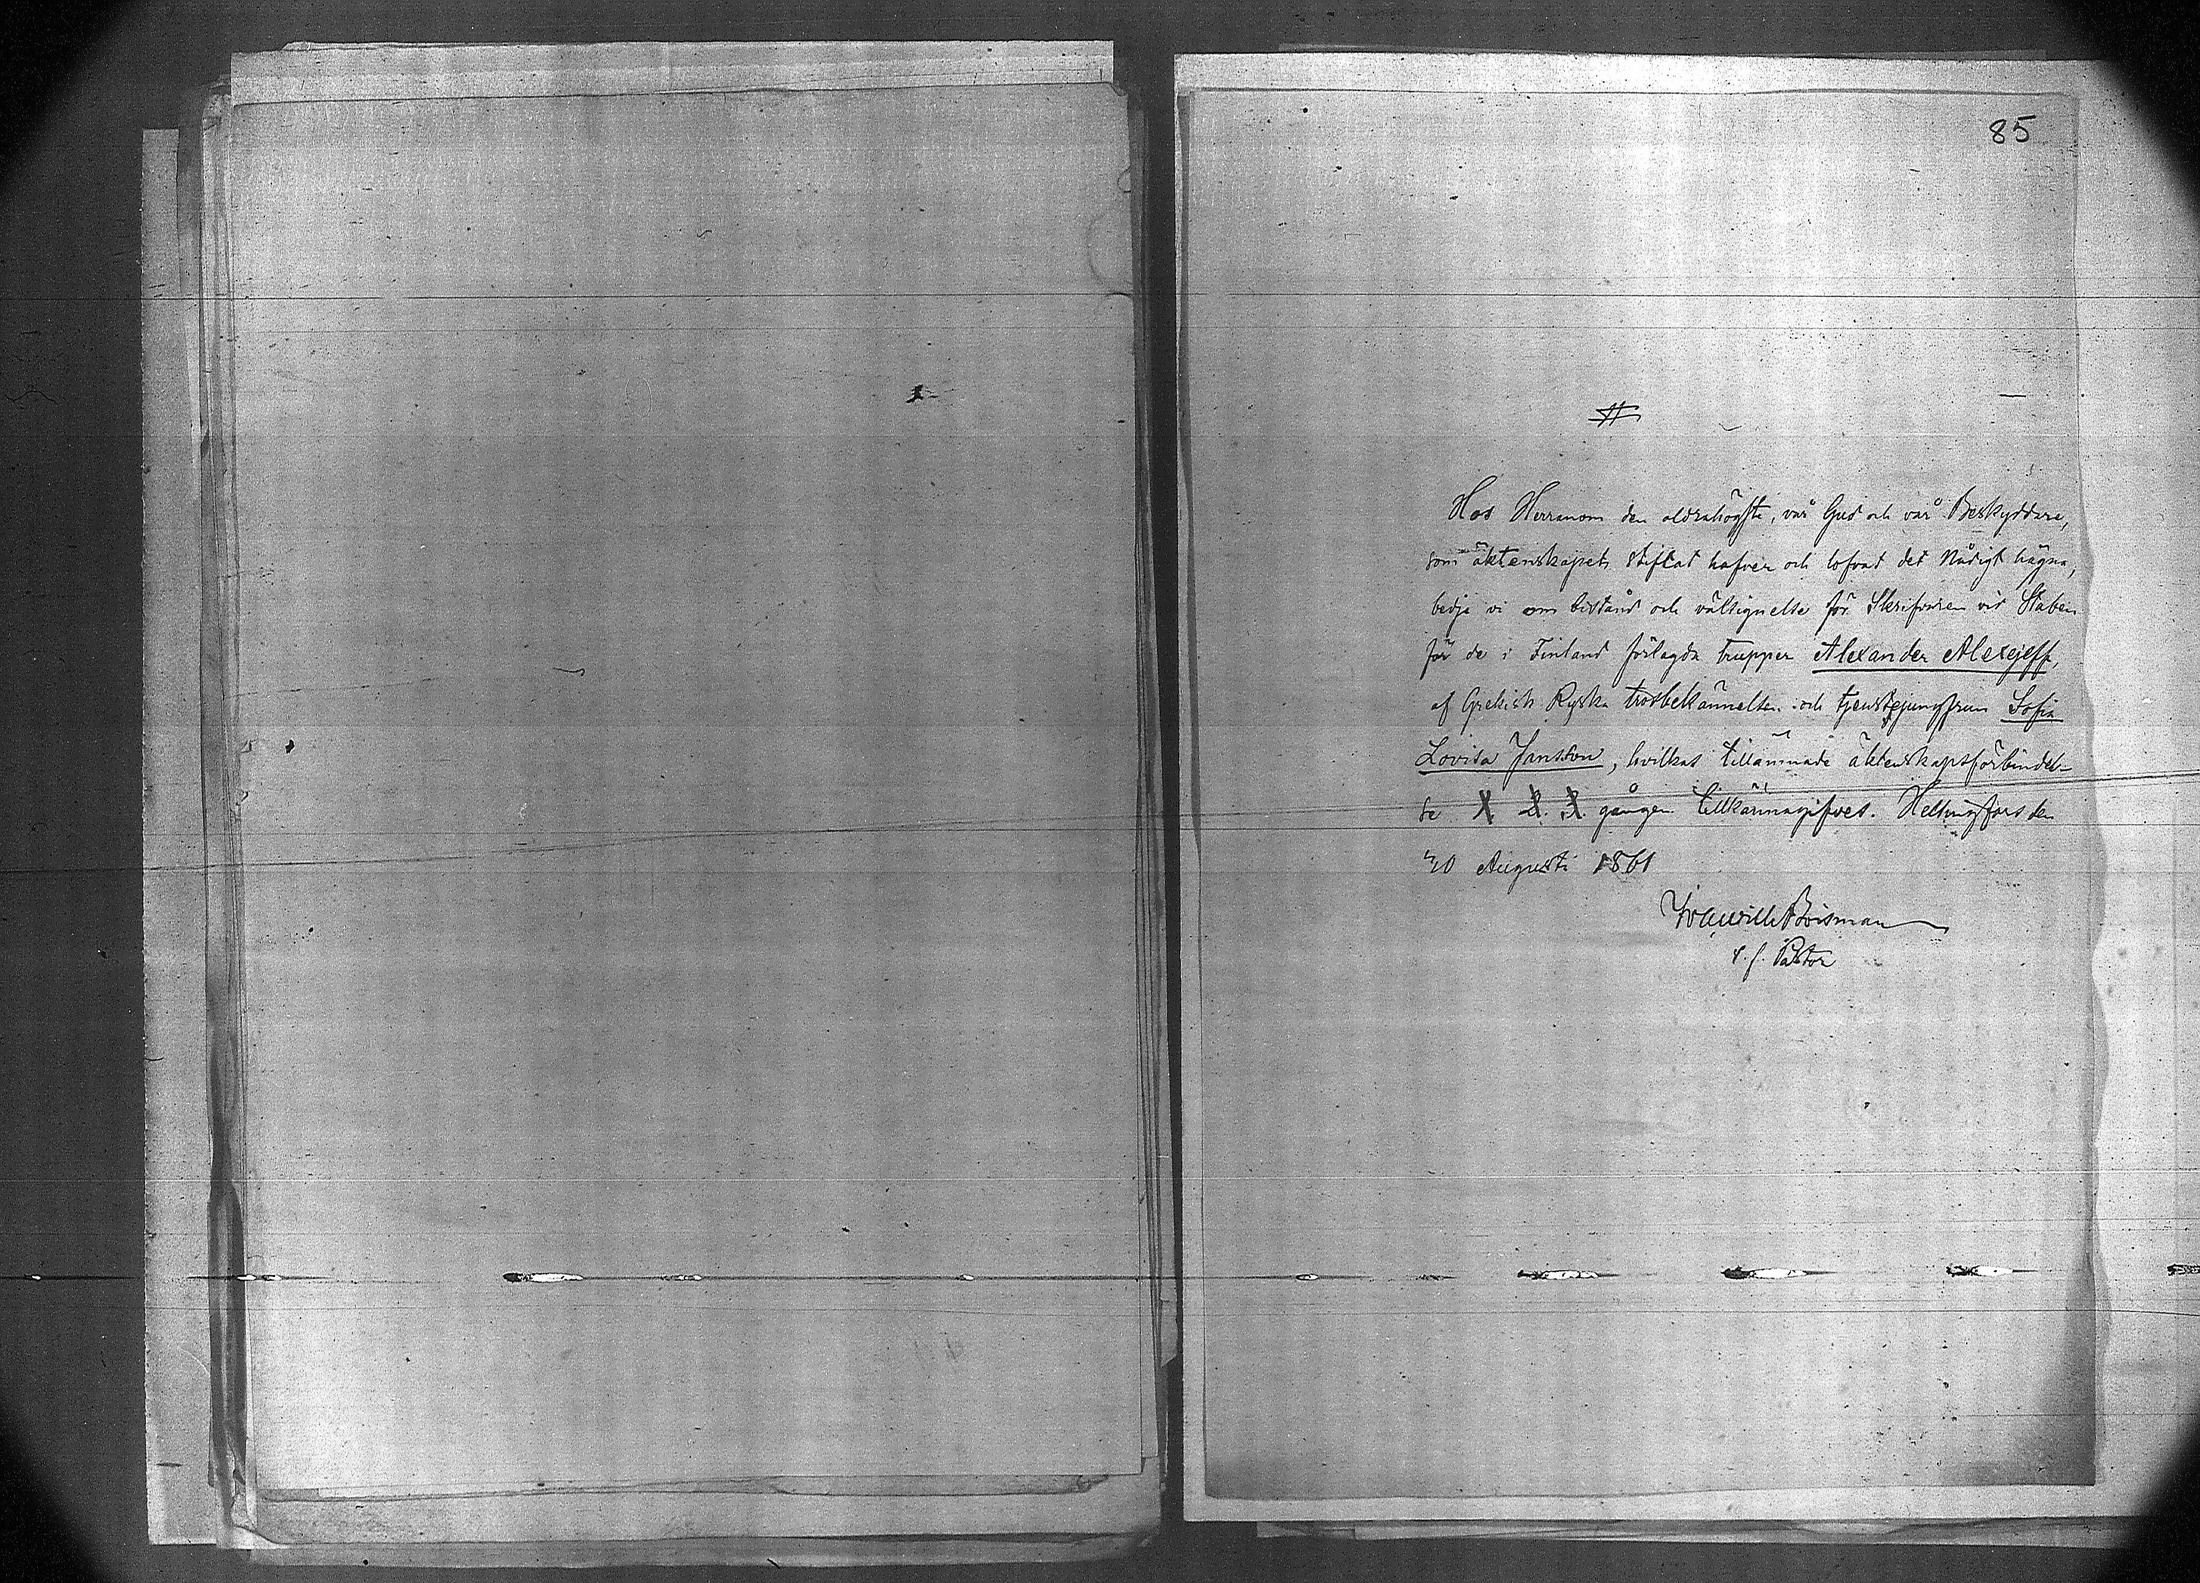 85
Hos Herranom den aldrahögste, vår Gud och vår Beskyddare,
som äktenskapet stiftat hafver och lofvat det Nådigt hägna,
bedja vi om bistånd och välsignelse för Skrifvaren vid Staben
för de i Finland förlagda trupper Alexander Alexejeff,
af Grekisk Ryska trosbekännelsen och tjenstejungfrun Sofia
Lovisa Jansson, hvilkas tillämnade äktenskapsförbindel-
se 1. 2. 3. gången tillkännagifves. Helsingfors den
10 Augusti 1861
Boisman
v. f. Pastor